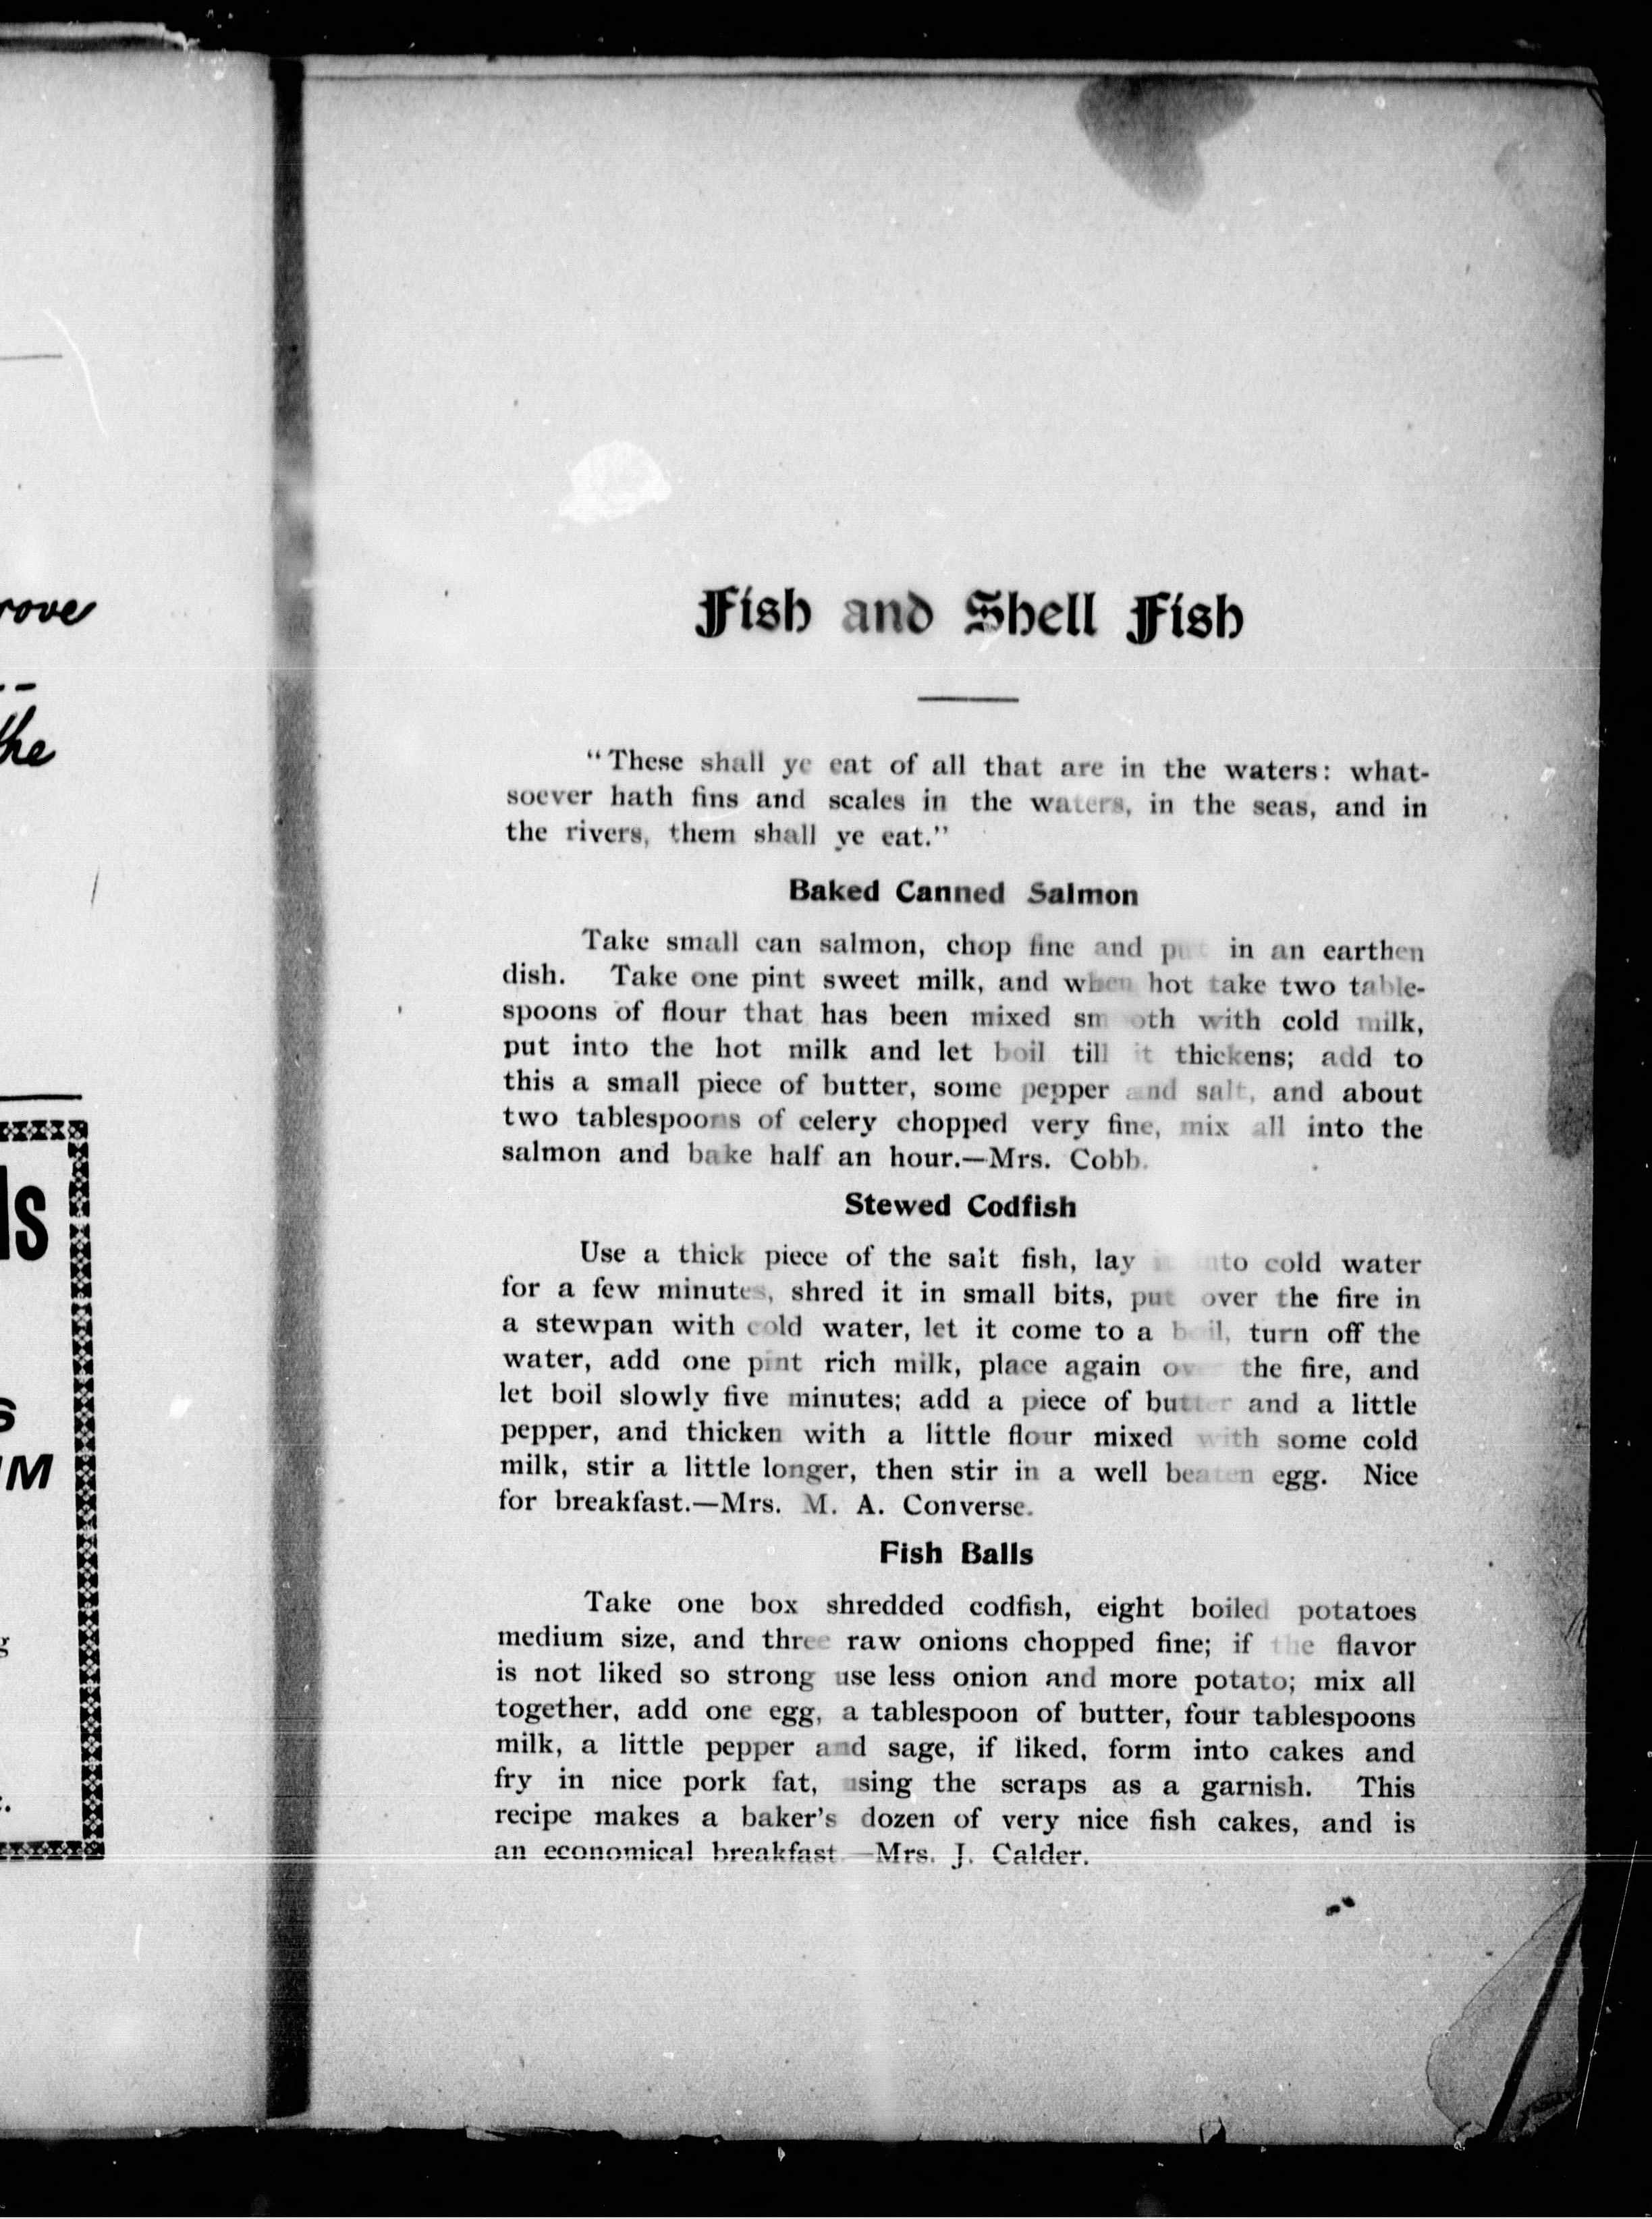 rove
the
ls
S
UM
g
Fish and Shell Fish
"These shall ye eat of all that are in the waters: what-
soever hath fins and scales in the waters, in the seas, and in
the rivers, them shall ye eat."
Baked Canned Salmon
Take small can salmon, chop fine and put in an earthen
dish. Take one pint sweet milk, and when hot take two table-
spoons of flour that has been mixed smooth with cold milk,
put into the hot milk and let boil till it thickens; add to
this a small piece of butter, some pepper and salt, and about
two tablespoons of celery chopped very fine, mix all into the
salmon and bake half an hour.—Mrs. Cobb.
Stewed Codfish
Use a thick piece of the salt fish, lay it into cold water
for a few minutes, shred it in small bits, put over the fire in
a stewpan with cold water, let it come to a boil, turn off the
water, add one pint rich milk, place again over the fire, and
let boil slowly five minutes; add a piece of butter and a little
pepper, and thicken with a little flour mixed with some cold
milk, stir a little longer, then stir in a well beaten egg. Nice
for breakfast.—Mrs. M. A. Converse.
Fish Balls
Take one box shredded codfish, eight boiled potatoes
medium size, and three raw onions chopped fine; if the flavor
is not liked so strong use less onion and more potato; mix all
together, add one egg, a tablespoon of butter, four tablespoons
milk, a little pepper and sage, if liked, form into cakes and
fry in nice pork fat, using the scraps as a garnish. This
recipe makes a baker's dozen of very nice fish cakes, and is
an economical breakfast.—Mrs. J. Calder.